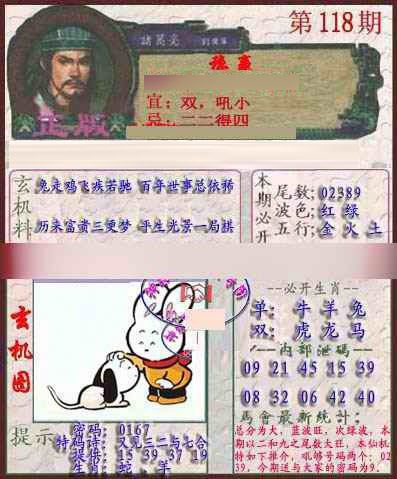 第118期
諸葛亮
正版
宜：双，吼小
忌：二二得四
玄机料
兔走鸡飞疾若驰 百年世事总依稀
历来富贵三更梦 平生光景一局棋
本期必开
尾数：02389
波色：红 绿
五行：金 火 土
玄机图
--必开生肖--
单：牛 羊 兔
双：虎 龙 马
内部泄码
09 21 45 15 39
08 32 06 42 40
馬會最新統計：
总分为大，蓝波旺，次绿波，本期以二和九之尾数大旺，本仙机特如下推介，吼够号码两个：0239，今期送与大家的密码为9。
提示
密码：0167
特码诗：又见三二与七合
提供：15 39 37 19
生肖：蛇、羊